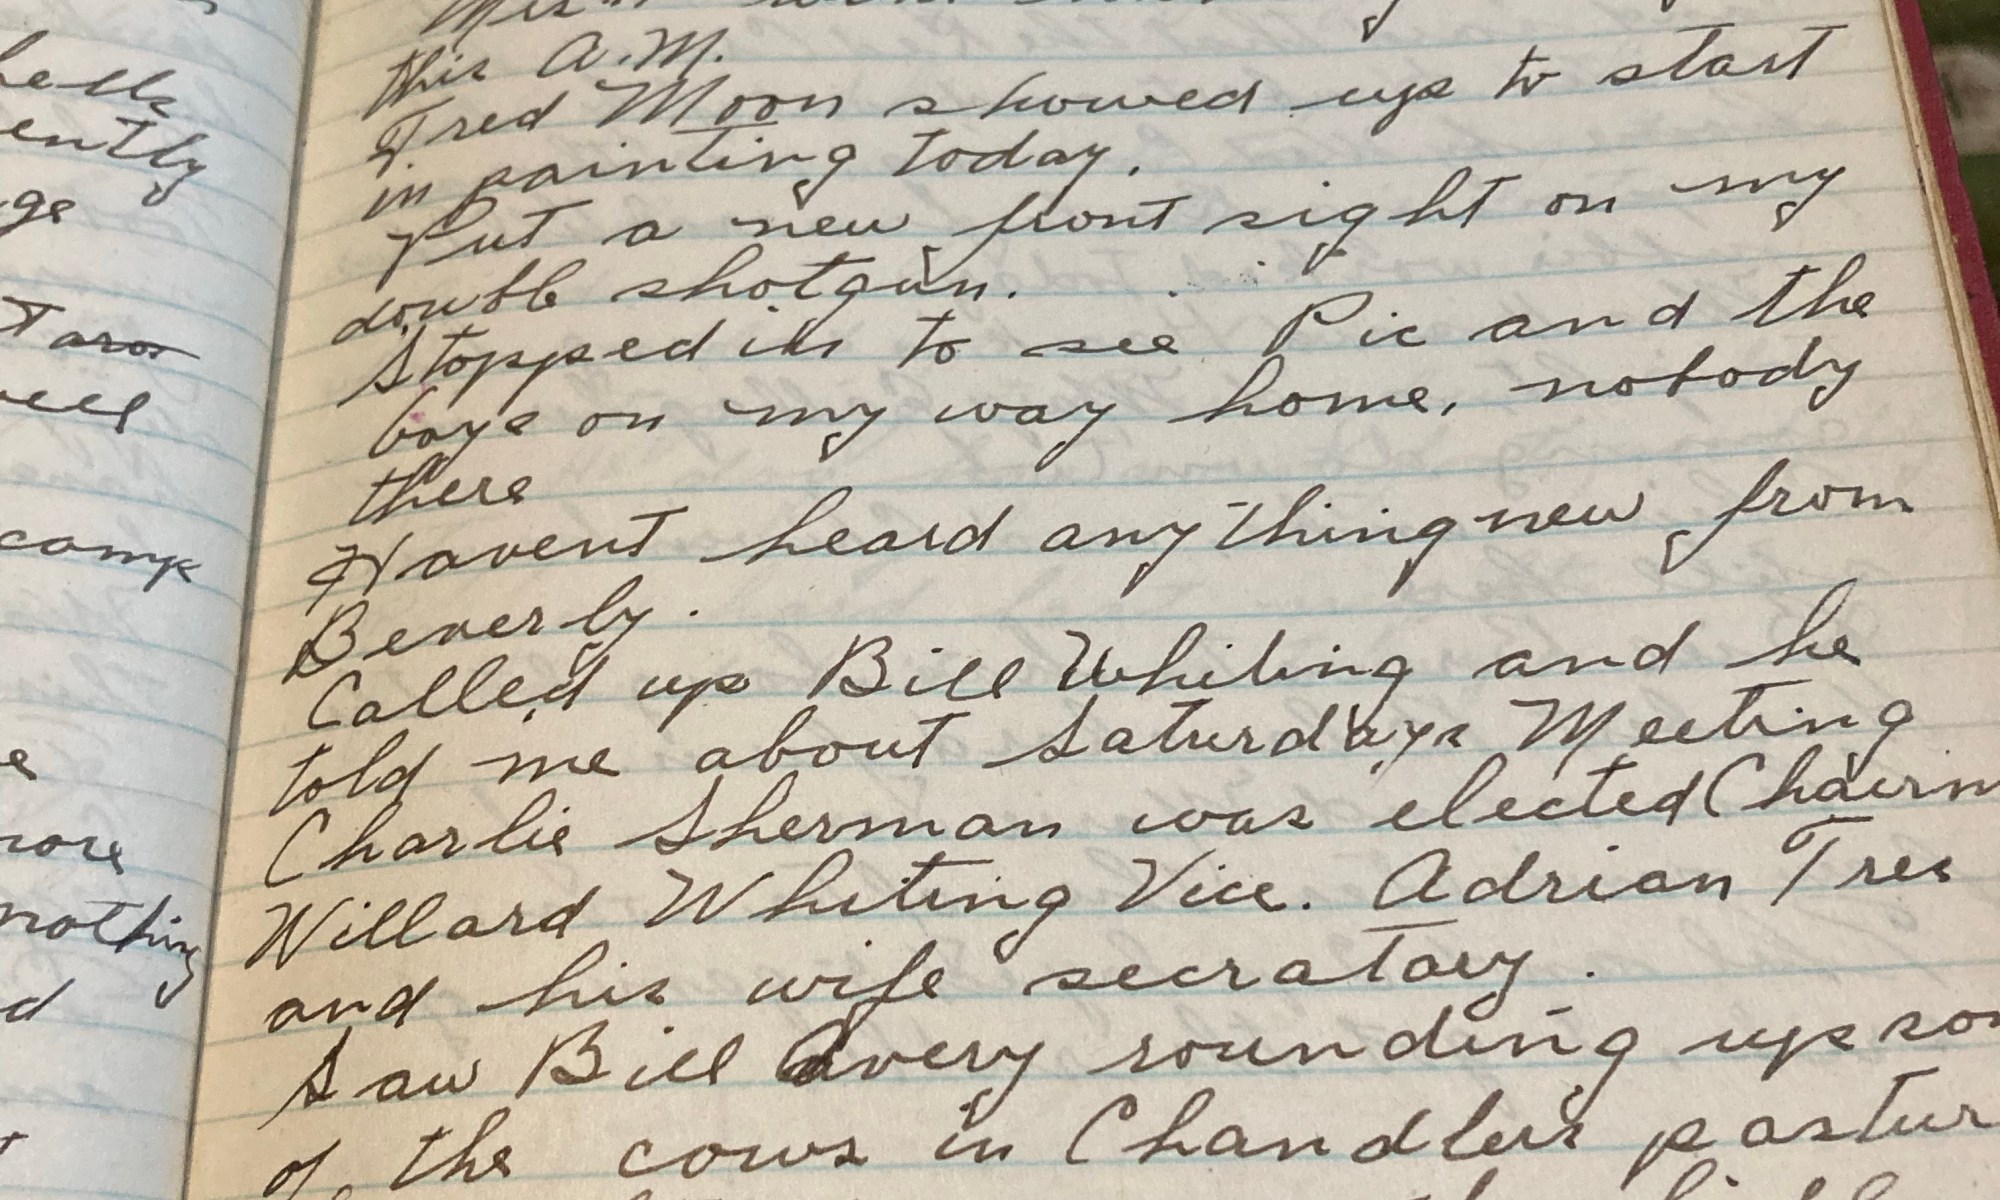 this A.M.
Fred Moon showed up to start
in painting today.
Put a new front sight on my
double shotgun.
Stopped in to see Pic and the
boys on my way home, nobody
there
Havent heard anything new from
Beverly.
Called up Bill Whiting and he
told me about Saturdays Meeting
Charlie Sherman was elected Chairm
Willard Whiting Vice. Adrian Tres
and his wife secratary.
Saw Bill Avery rounding up som
of the cows in Chandlers pastur
ently
ge
camp
e
more
nothing
d